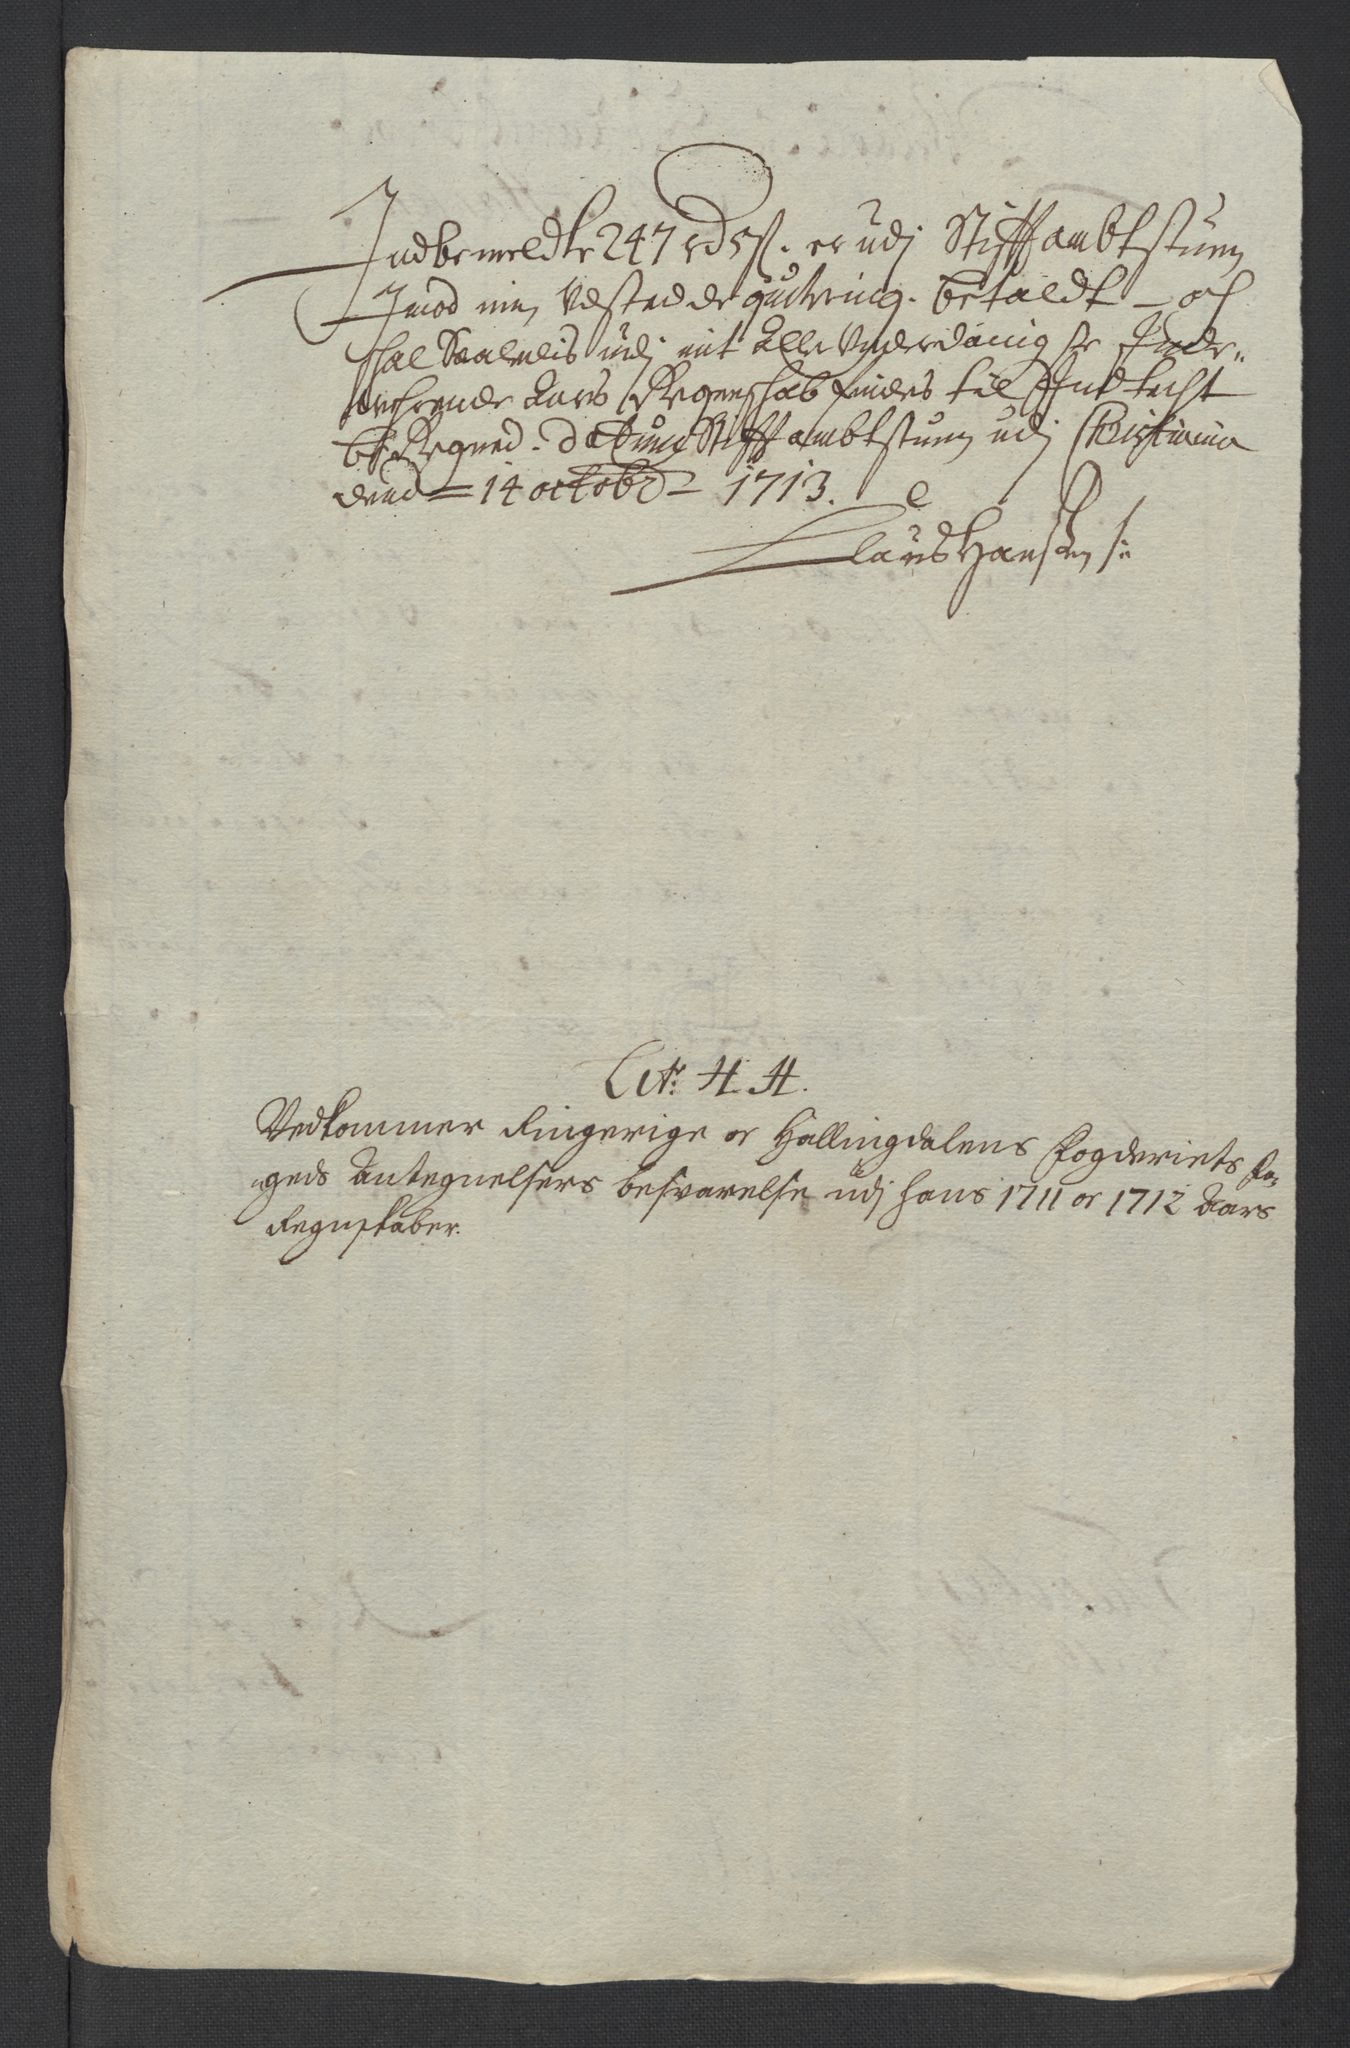 Indbemeldte 247 rd 5 s. er udj Stifftambtstuen
Imod min Udstædde quitering. betaldt - och
skal Saaledis udj mit Alleunderdanigste Inde-
werende Aars Regenskab findes til Indtecht
beRegned. datum Stifftambtstuen udj Christiania
dend = 14 octobr = 1713.
Claus Hansen
Litr: H. H.
Vedkommer Ringerige oc Hallingdalens Fogderiets Fo-
geds Antegnelsers besvarelse udj hans 1711 oc 1712 Aars
Regnskaber.